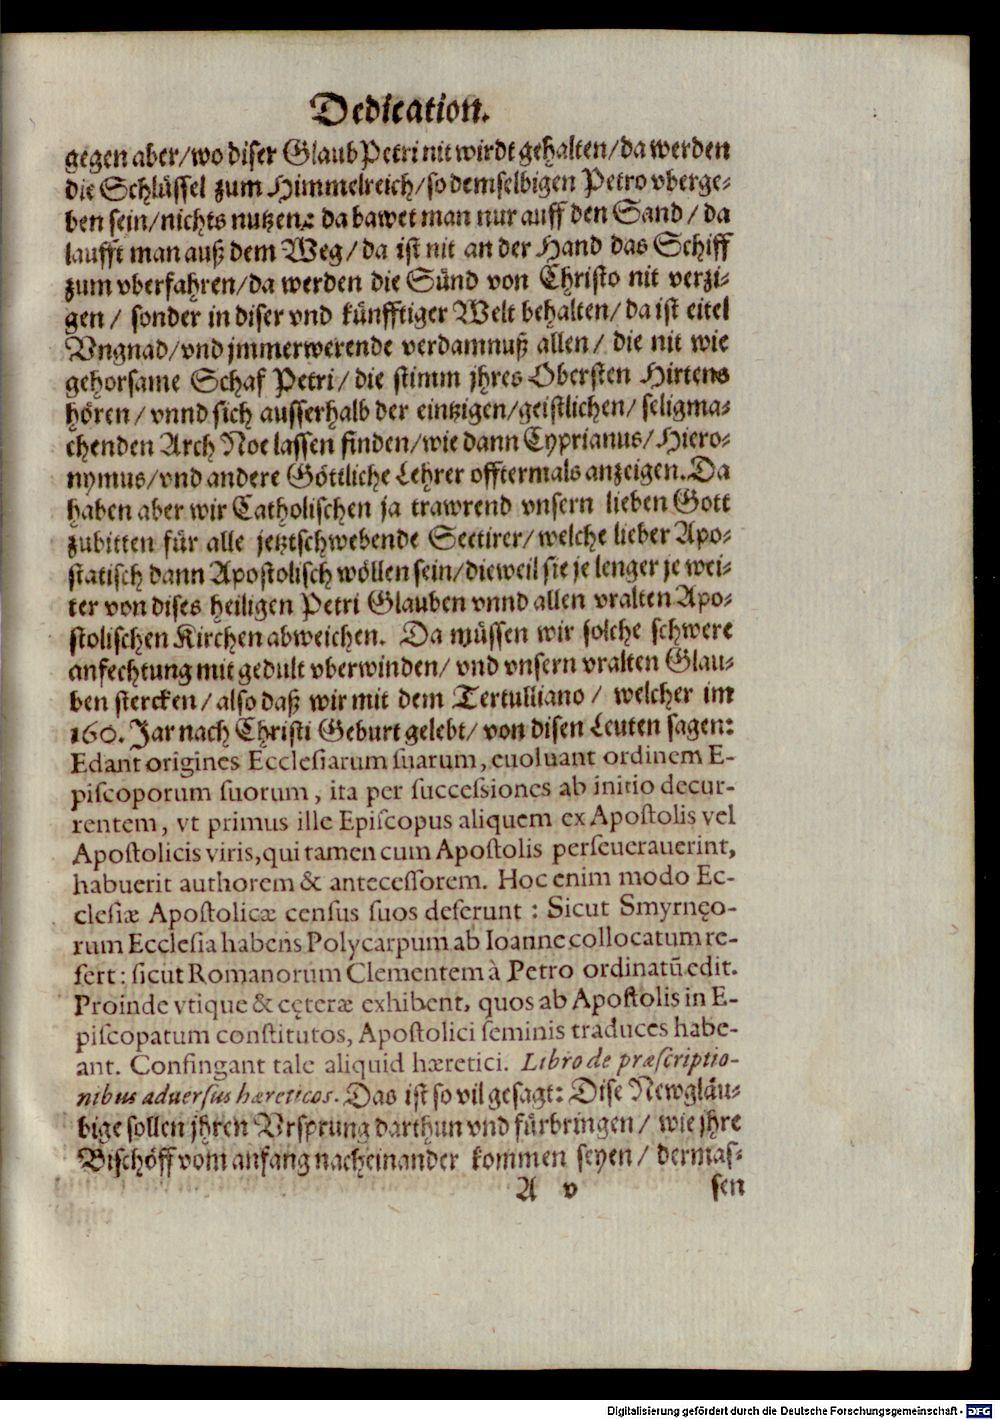 Dedication.
gegen aber/wo diser Glaub Petri nit wirdt gehalten/da werden
die Schlüssel zum Himmelreich/so demselbigen Petro vberge-
ben sein/nichts nutzen: da bawet man nur auff den Sand/da
laufft man auß dem Weg/da ist nit an der Hand das Schiff
zum vberfahren/da werden die Sünd von Christo nit verzi-
gen/ sonder in diser vnd künfftiger Welt behalten/da ist eitel
Vngnad/vnd jmmerwerende verdamnuß allen/ die nit wie
gehorsame Schaf Petri/die stimm jhres Obersten Hirtens
hören/vnnd sich ausserhalb der eintzigen/geistlichen/seligma-
chenden Arch Noe lassen finden/wie dann Cyprianus/Hiero-
nymus/vnd andere Göttliche Lehrer offtermals anzeigen. Da
haben aber wir Catholischen ja trawrend vnsern lieben Gott
zubitten für alle jetztschwebende Sectirer/welche lieber Apo-
statisch dann Apostolisch wöllen sein/dieweil sie je lenger je wei-
ter von dises heiligen Petri Glauben vnnd allen vralten Apo-
stolischen Kirchen abweichen. Da müssen wir solche schwere
anfechtung mit gedult vberwinden/vnd vnsern vralten Glau-
ben stercken/also daß wir mit dem Tertulliano/ welcher im
160. Jar nach Christi Geburt gelebt/von disen Leuten sagen:
Edant origines Ecclesiarum suarum, euoluant ordinem E-
piscoporum suorum, ita per successiones ab initio decur-
rentem, vt primus ille Episcopus aliquem ex Apostolis vel
Apostolicis viris, qui tamen cum Apostolis perseuerauerint,
habuerit authorem & antecessorem. Hoc enim modo Ec-
clesiæ Apostolicæ census suos deferunt: Sicut Smyrnęo-
rum Ecclesia habens Polycarpum ab Ioanne collocatum re-
fert: sicut Romanorum Clementem à Petro ordinatũ edit.
Proinde vtique & cęteræ exhibent, quos ab Apostolis in E-
piscopatum constitutos, Apostolici seminis traduces habe-
ant. Confingant tale aliquid hæretici. Libro de præscriptio-
nibus aduersus hæreticos. Das ist so vil gesagt: Dise Newgläu-
bige sollen jhren Vrsprung darthun vnd fürbringen/ wie jhre
Bischöff vom anfang nacheinander kommen seyen/ dermas-
A v sen
Digitalisierung gefördert durch die Deutsche Forschungsgemeinschaft - DFG